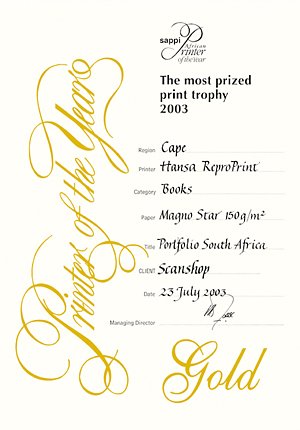 sappi
African
Printer
of the year
The most prized
print trophy
2003
Printer of the Year
Region Cape
Printer Hansa ReproPrint
Category Books
Paper Magno Star 150g/m²
Title Portfolio South Africa
CLIENT Scanshop
Date 23 July 2003
Managing Director
Gold